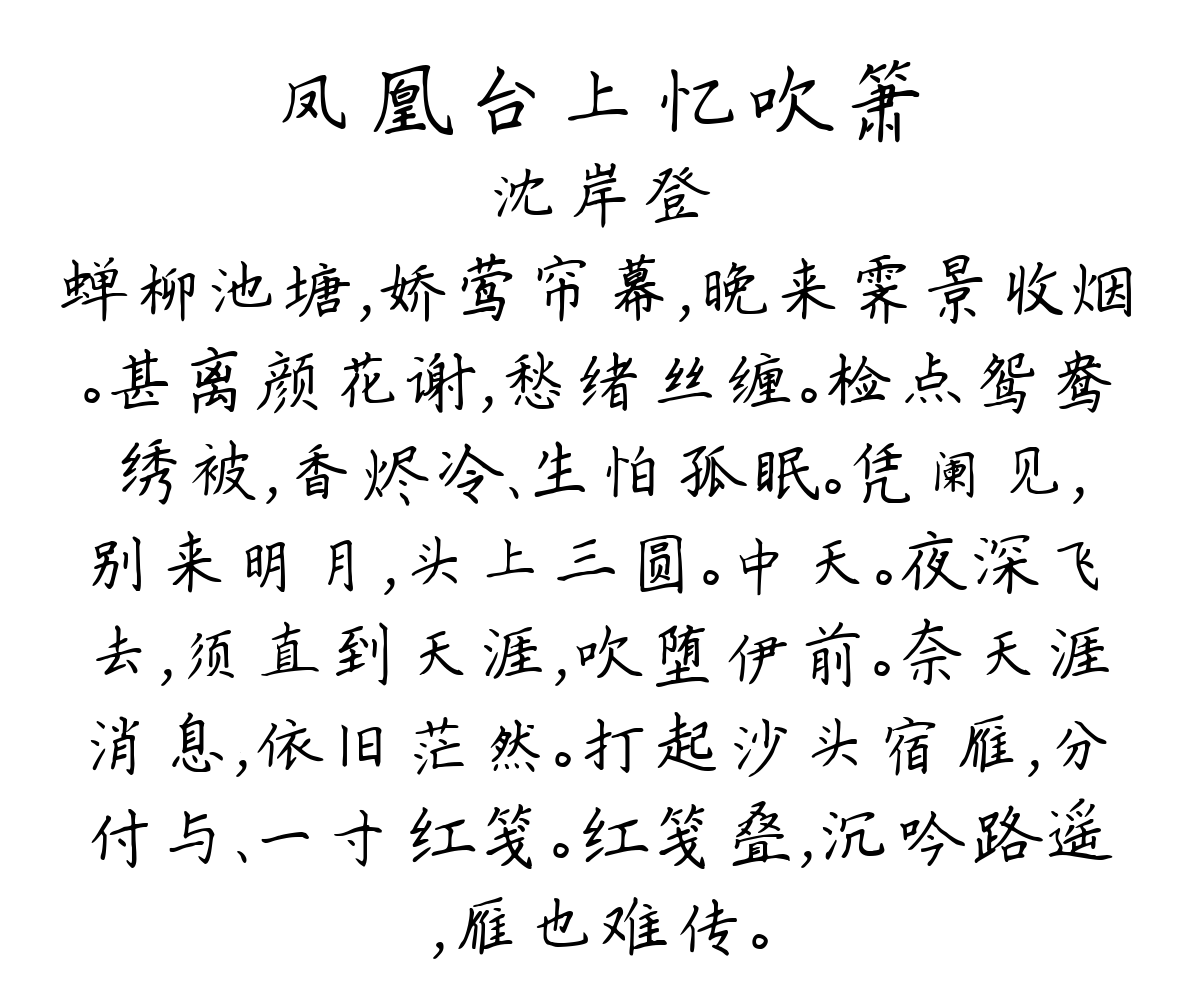 凤凰台上忆吹箫
沈岸登
蝉柳池塘,娇莺帘幕,晚来霁景收烟
。甚离颜花谢,愁绪丝缠。检点鸳鸯
绣被,香烬冷、生怕孤眠。凭阑见,
别来明月,头上三圆。中天。夜深飞
去,须直到天涯,吹堕伊前。奈天涯
消息,依旧茫然。打起沙头宿雁,分
付与、一寸红笺。红笺叠,沉吟路遥
,雁也难传。